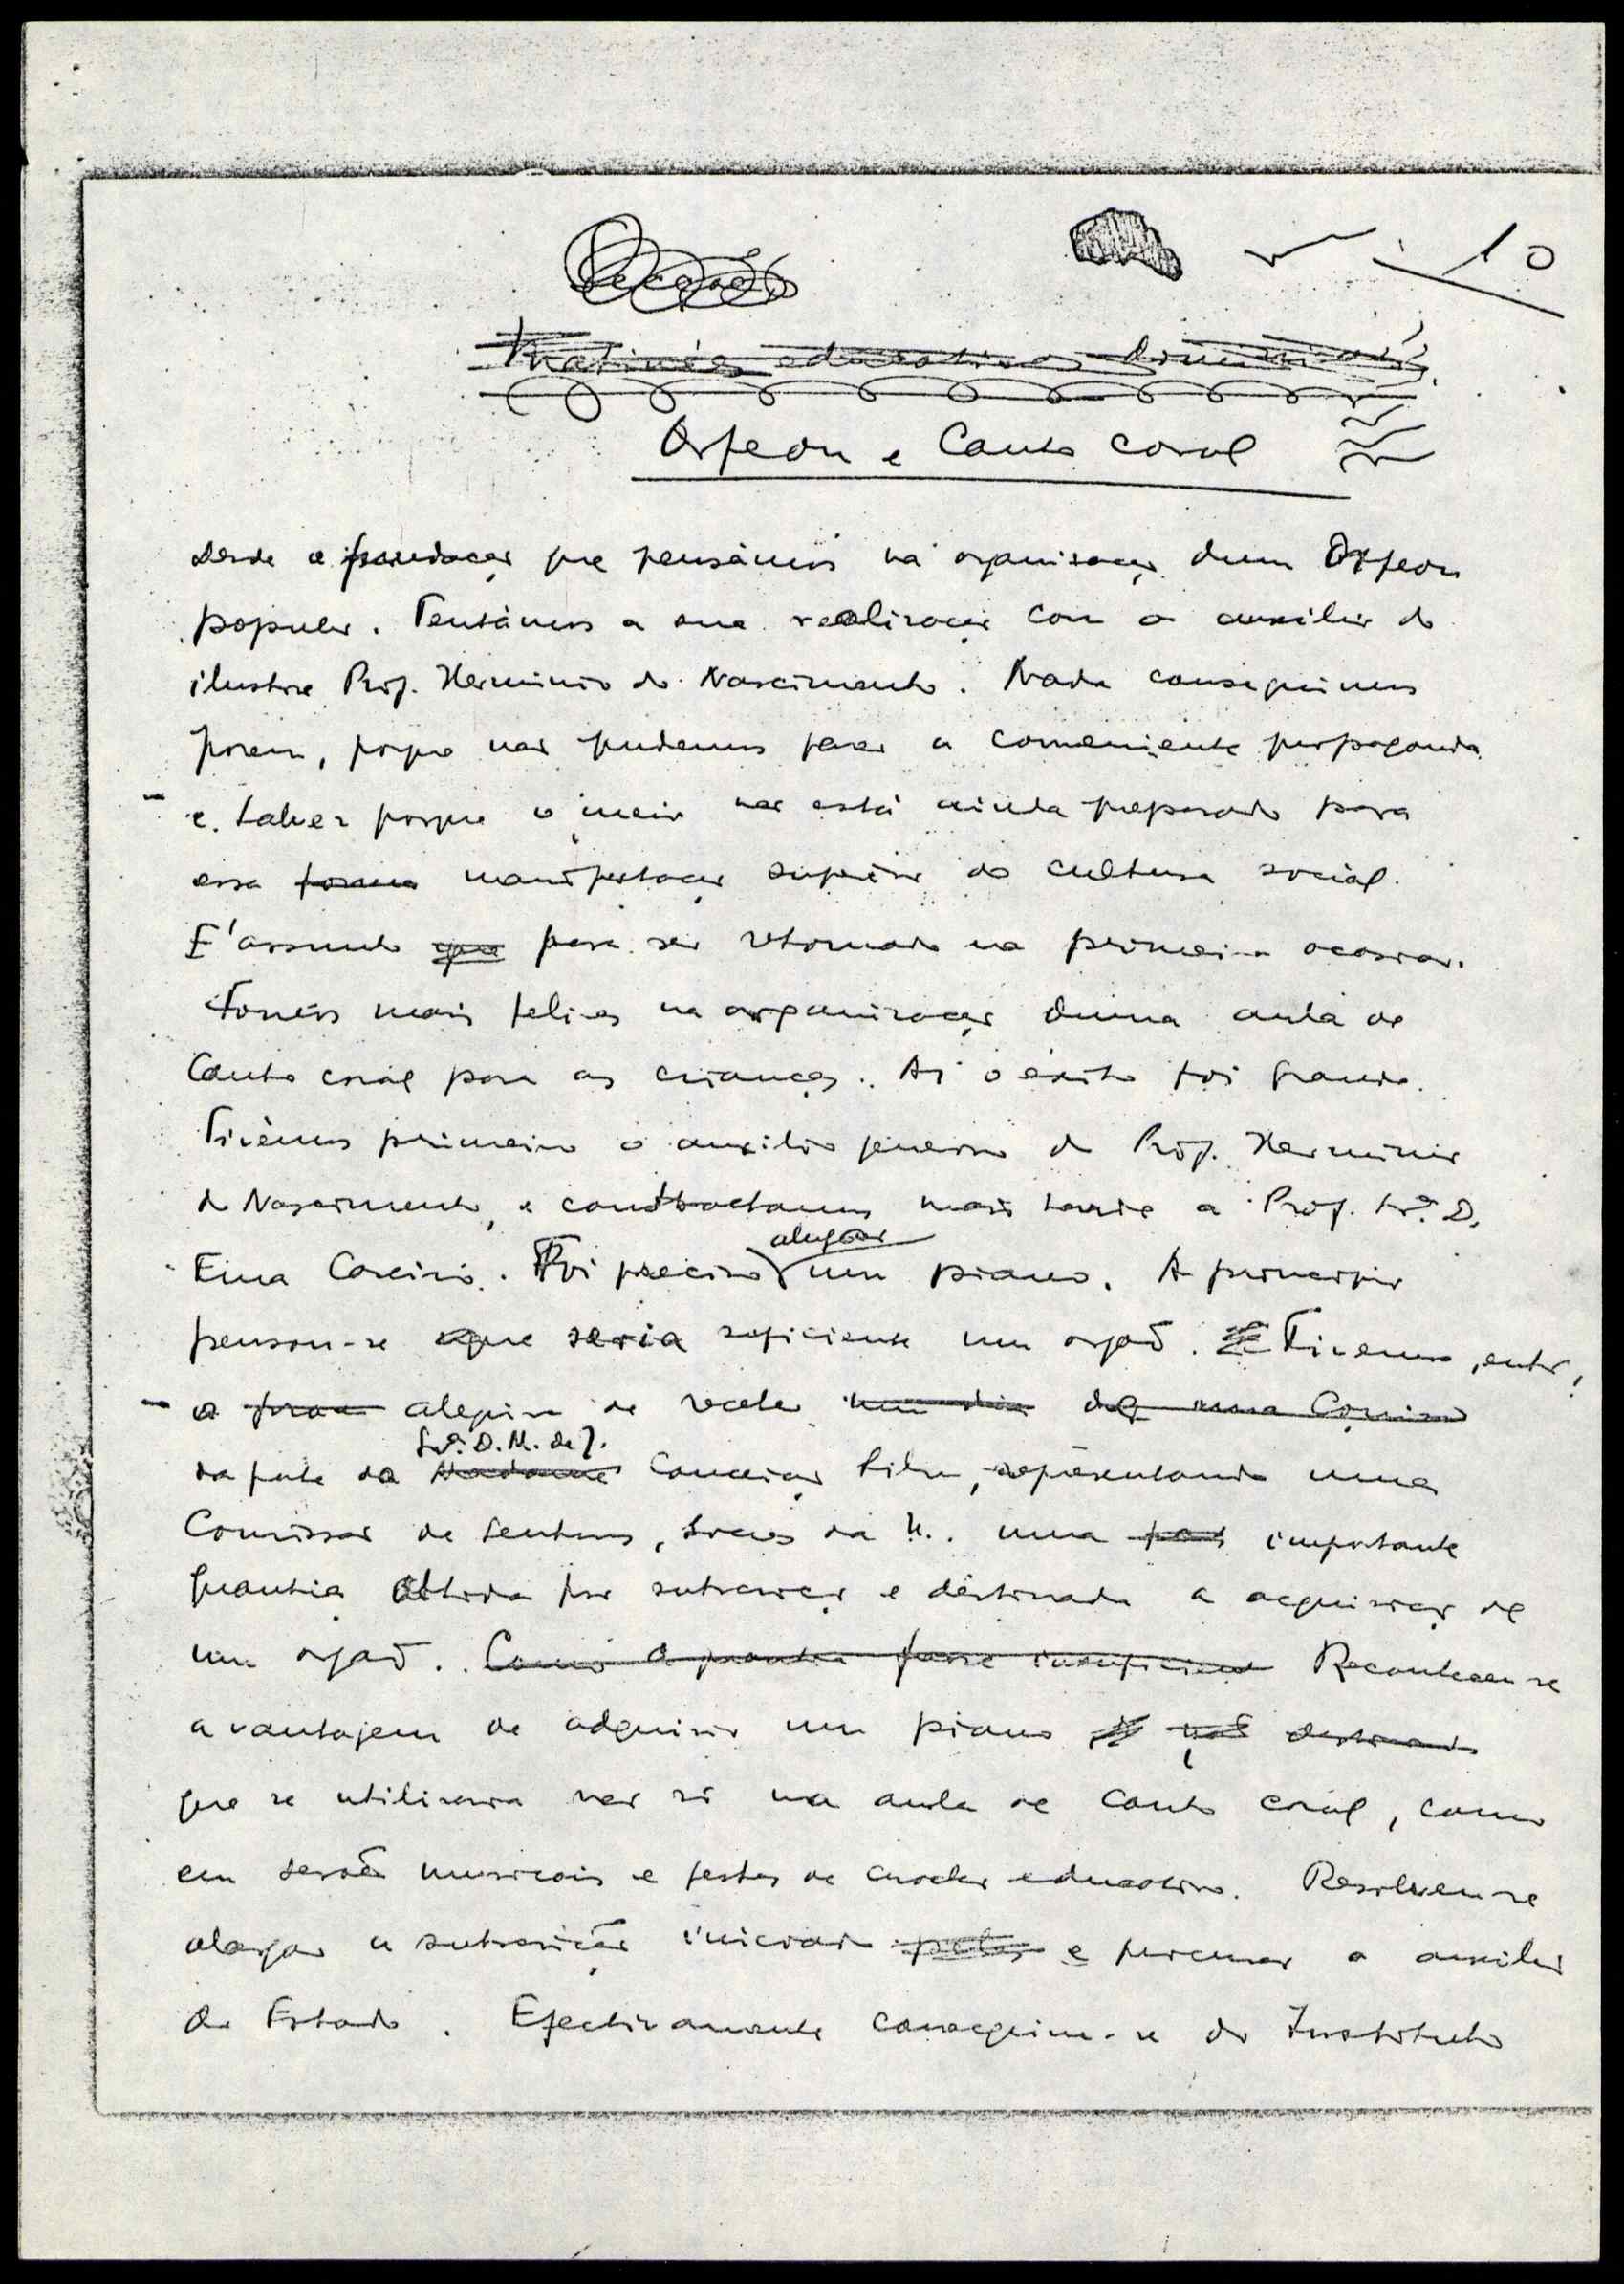 10
Matinées educativas dominicais
Orfeon e Canto coral
Desde a fundação que pensámos na organisação dum Orfeon
popular. Tentámos a sua realização com o auxilio do
ilustre Prof. Herminio do Nascimento. Nada conseguimos
porem, porque não pudemos fazer a conveniente propaganda
e talvez porque o meio não está ainda preparado para
essa forma manifestação superior de cultura social.
E' assunto que para ser retomado na primeira ocasião.
Fomos mais felizes na organização duma aula de
Canto coral para as crianças. Aí o êxito foi grande.
Tivémos primeiro o auxilio generoso do Prof. Herminio
do Nascimento, e contractamos mais tarde a Prof. Sr.ª D.
Ema. Foi preciso alugar um piano. A principio
pensou-se que seria suficiente um orgaõ. Tivemos, entã,
a alegria de receber um dia de uma Comissão
da parte da Madame Sr.ª D. M. de J. Conceição Silva, representando uma
Comissão de senhoras, socias da U. uma importante
quantia obtida por subscrição e destinada a aquisição de
um orgaõ. Como a quantia fosse insuficiente Reconheceu-se
a vantajem de adquirir um piano não destinado
que se utilizaria não só na aula de Canto coral, como
em serões musicais e festas de caracter educativo. Resolveu-se
alargar a subscrição iniciada pelas e procurar o auxilio
do Estado. Efectivamente conseguiu-se do Instituto